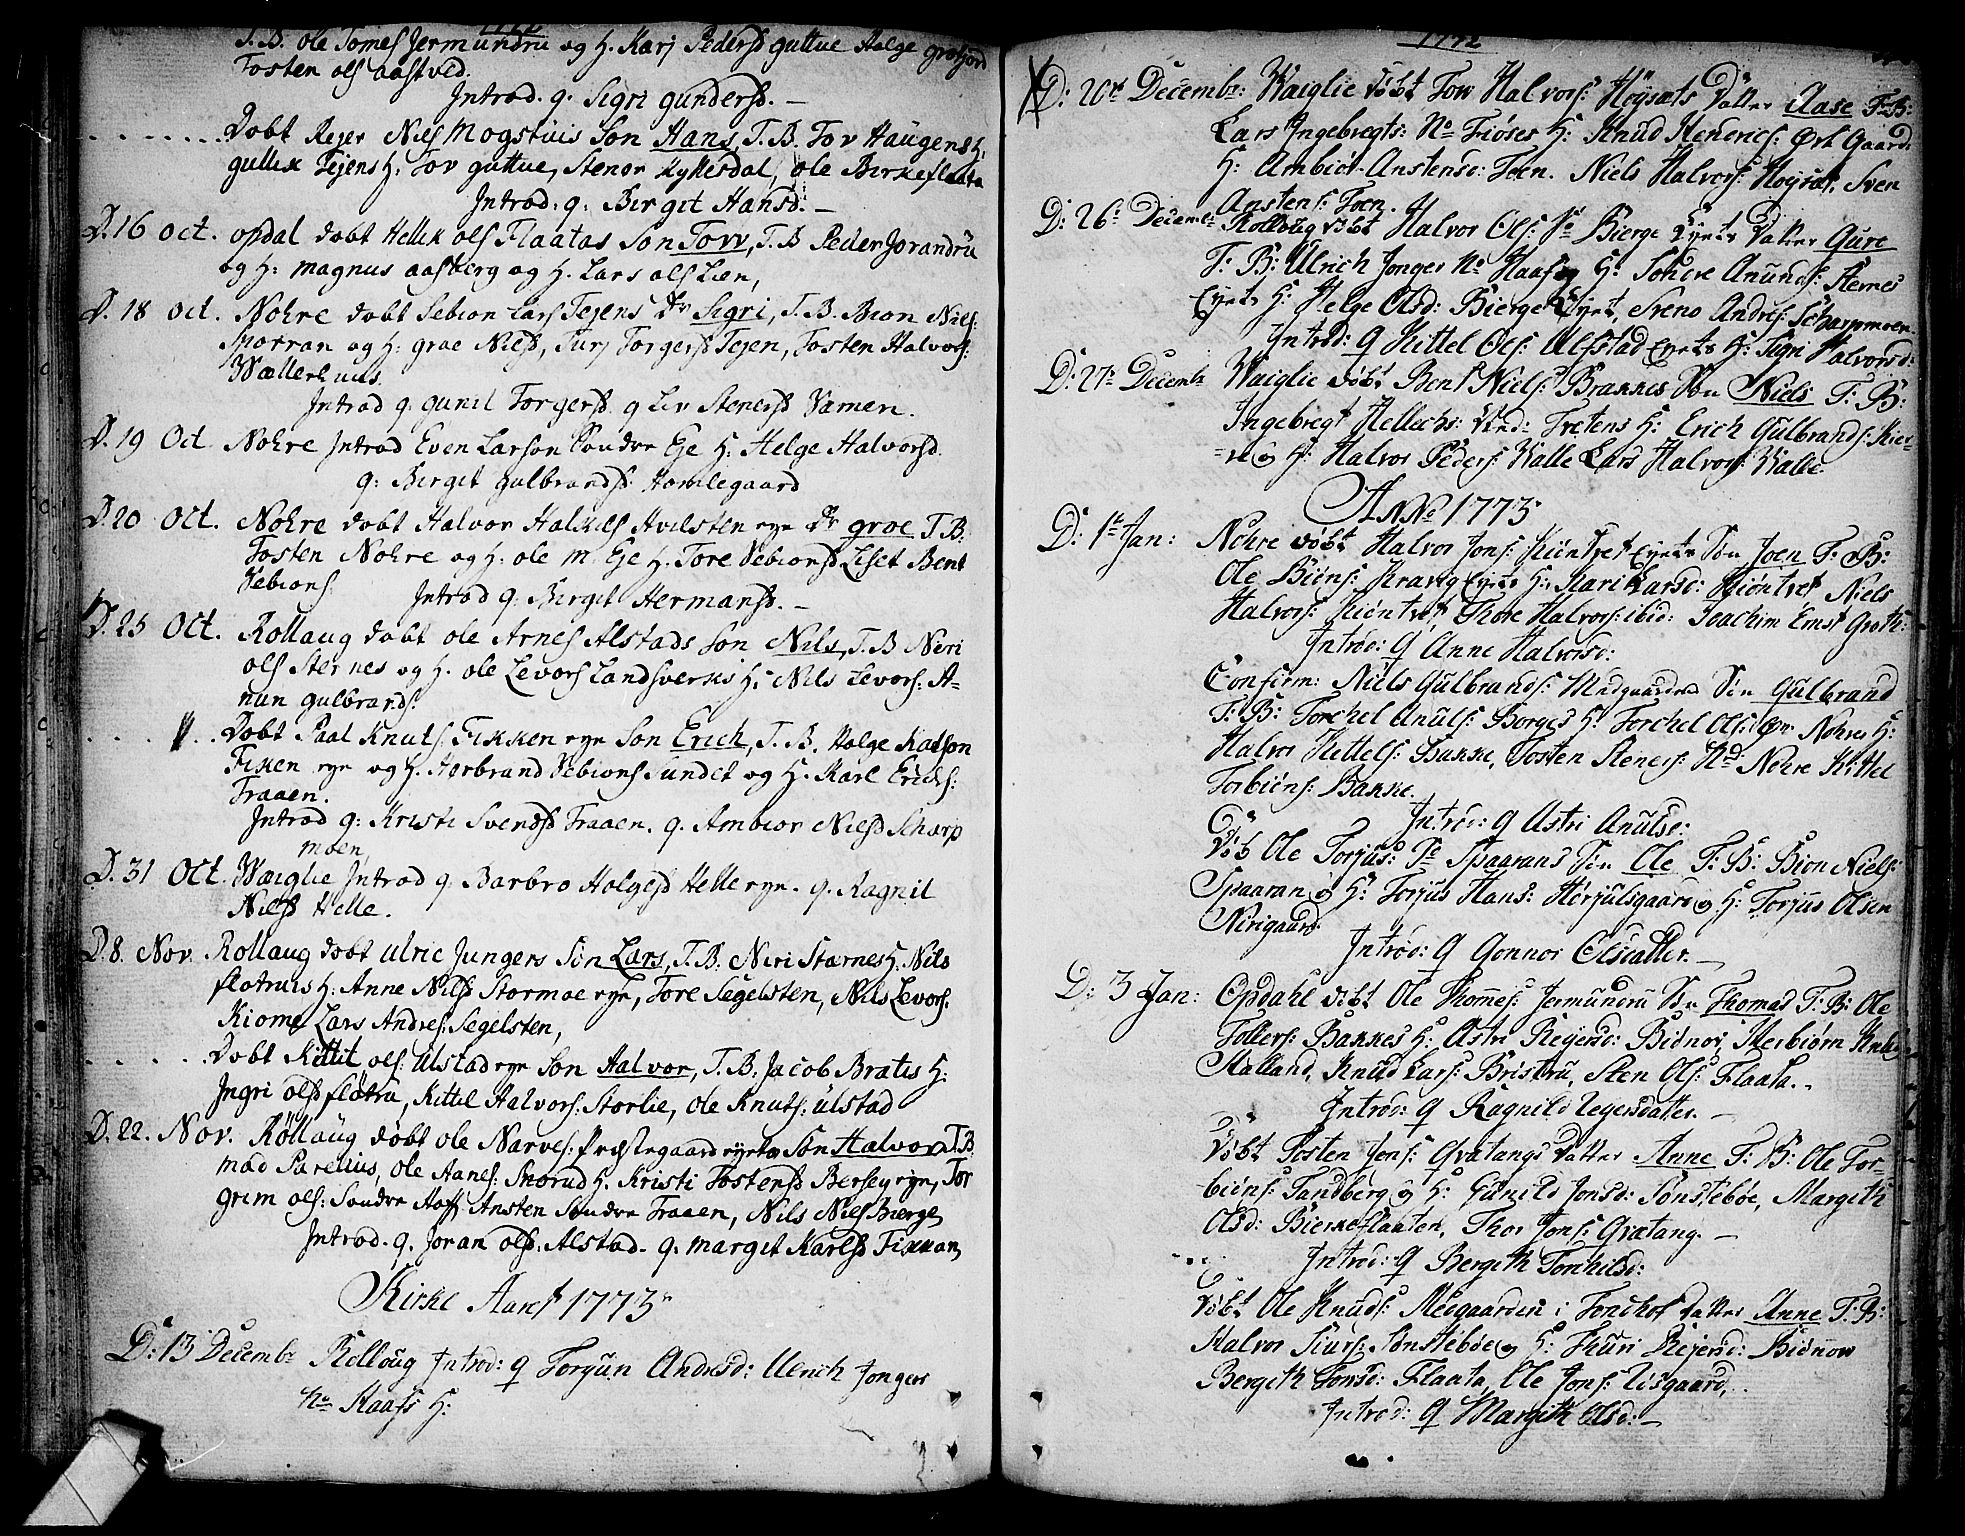 1772
T. B. ole Tomes Jermundru og H. Karj Pedersd guttue Helge grofjord
Tosten ols aastved.
Introd. q. Sigri gundersd. —
Dobt Rejer Niels Mogstuis Son Hans, T. B. Tov Haugens H.
gullik Tejens H. Tov guttue, Stenor Kyllesdal, ole Birkeflaata
Introd: q: Birgit Hansd. —
D. 16 oct. opdal dobt Hellik ols Flaatas Son Tovv, T. B Peder Jorandru
og H: magnus aasberg og H. Lars ols Lien,
D. 18 oct. Nohre dobt Sebion Lars Tejens Dr Sigri, T. B. Bion Niels:
Sporran og H: groe Nielsd, Turj Torgersd Tejen, Tosten Halvors:
Wællerhuus.
Introd q. gunil Torgersd. q Liv Stenersd Væmen.
D. 19 Oct Nohre Introd Even Larson Sondre Eje H. Helge Halvorsd.
q: Birgit gulbrandsd Homlegaard
D. 20 Oct. Nohre dobt Halvor Halkiels Hvilsten eye Dr groe T. B.
Tosten Nohre og H: ole m. Eje H. Tore Sebionsd Liset Bent
Sebions: Introd q. Birgit Hermansd. —
D. 25 Oct. Rollaug dobt ole Arnes Alstads Son Nils, T. B Neri
ols Sternes og H. ole Levors Landsverks H: Nils Levors: A-
nun gulbrands:
Dobt Paal Knuts: Fikken eye Son Erich, T. B. Helge Katson
Fiken eye og H. Herbrand Sebions Sundet og H. Karl Erichs:
Fraaen.
Introd q: Kristi Svendsd Fraaen. q. Ambior Nielsd Scharp
moen,
D. 31 Oct. Wæiglie Introd q. Barbro Holgesd Helle eye. q. Ragnil
Nielsd Helle.
D. 8. Nov. Rollaug dobt Ulric Jungers Son Lars, T. B. Neri Stærnes H. Nils
flotruis H: Anne Nilsd Stormoe eye, Tore Segelsten, Nils Levors:
Kiome Lars Andres: Segelsten,
Dobt Kittil ols: Ulstad eye Son Halvor, T. B. Jacob Bratts H:
Ingri olsd flotru, Kittil Halvors: Storlie, ole Knuts: ulstad
D. 22. Nov. Rollaug dobt ole Narves: Præstegaard eyets Son Halvor T. B
mad Parelius, ole Aanes: Skorud H. Kristi Tostensd Bersey eye, Tor
grim ols: Sondre Hoff Ansten Sondre Fraaen, Nils Niels Bierge
Introd. q. Joran olsd: Alstad. q. margit Karlsd Fikkan,
Kirke Aaret 1773
D: 13 Decembr Rolloug Introd: q Torgun Andersd: Ulrich Jongers
No Haafs H:
1772
D: 20de Decembr: Waiglie døbt Tow Halvors: Høysæts Datter Aase F: B:
Lars Ingebregts: No Fiøses H: Knud Hendrics: Ørt Gaard:
H: Ambiør Anstensd: Foen. Niels Halvors: Høysæt, Sven
Anstens: Foen.
D: 26: Decembr Rolloug døbt Halvor Ols: So Bierge Eyets Datter Gure
F: B: Ulrich Jonger No Haafs og H: Søndre Anunds: Sternes
Eyets H: Helge Olsd: Bierge Eyet, Sveno Andres: Scharpmoen
Introd: q Kittel Ols: Ulsstad Eyets H: Sigri Halvorsd:
D: 27: Decembr Waiglie døbt Bent Niels: Brakkes Søn Niels F: B:
Ingebregt Hellechs: Vind: Tretens H: Erich Gulbrands: Kier-
re og H: Halvor Peders: Walle Lars Halvors: Walle
ANNo 1773
D: 1te Jan: Nohre døbt Halvor Jons: Kiøntvet Eyets Søn Joen F: B:
Ole Biøns: Kravig Eyets H: Mari Larsd: Kiøntvet Niels
Halvors: Kiøntvet, Thore Halvors: ibid: Joachim Ernst Groth:
Introd: q Anne Halvorsd:
Confirm: Niels Gulbrands: Midgaardens Søn Gulbrand
F: B: Torchel Anuls: Borges H: Torchel Ols: Ør Nohres H:
Halvor Kittels: Bakke, Tosten Steners: Nd: Nohre Kittel
Torbiøns: Bakke.
Introd: q Astri Anulsd:
Døb Ole Torjus: So Spaarans Søn Ole F: B: Bion Niels:
Spaaran og H: Torjus Hans: Hørjulsgaard og H: Torjus Olsen
Nirigaard.
Introd: q Gonnor Olsdatter. —
D: 3 Jan: Opdahl døbt Ole Thomes: Jermundru Søn Thomas F: B: Ole
Tollers: Bakkes H: Astri Reyersd: Bidnov, Herbiørn Knuds
Halland, Knud Lars: Bristru, Sten Ols: Flaata. —
Introd: q Ragnild Reyersdatter. —
Døbt Tosten Jons: Qvatangs Datter Anne F: B: Ole Tor-
biøns: Tandberg og H: Gunild Jonsd: Sønstebøe, Margith
Olsd: Bierkeflaaten, Thor Jons: Qvatang. —
Introd: q Bergith Torchilsd:
Døbt Ole Knuds: Medgaarden i Tonchof Datter Anne F: B:
Halvor Siurs: Sønstebøe og H: Thuri Rejersd: Bidnow
Bergith Tovsd: Flaata, Ole Jons: Lisgaard,
Introd: q Margith Olsd: —